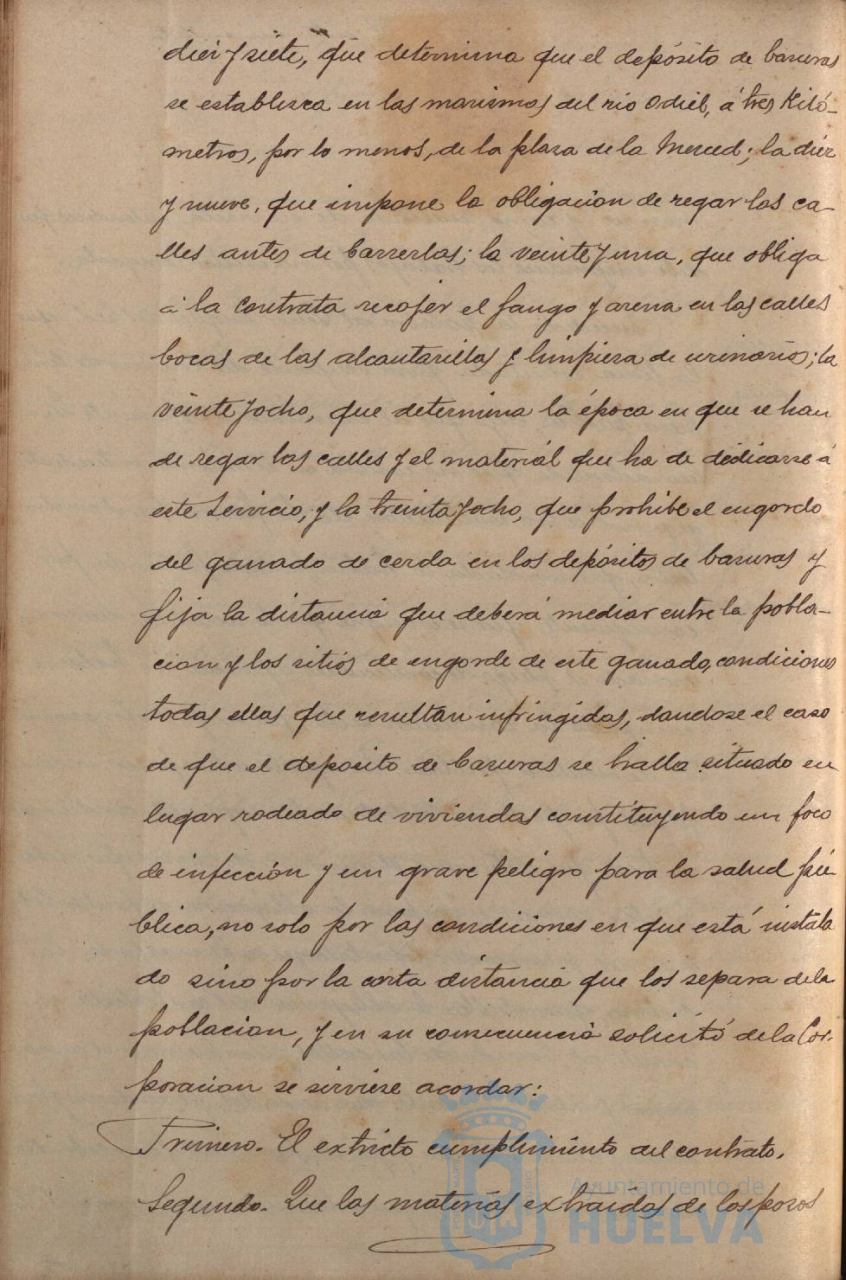 diez y siete, que determina que el depósito de basuras
se establezca en las marismas del rio Odiel, á tres Kiló-
metros, por lo menos, de la plaza de la Merced; la diez
y nueve, que impone la obligacion de regar las ca-
lles antes de barrerlas; la veinte y una, que obliga
á la contrata recojer el fango y arena en las calles
bocas de las alcantarillas y limpieza de urinarios; la
veinte y ocho, que determina la época en que se han
de regar las calles y el material que ha de dedicarse á
este servicio, y la treinta y ocho, que prohibe el engordo
del ganado de cerda en los depósitos de basuras y
fija la distancia que deberá mediar entre la pobla-
cion y los sitios de engorde de este ganado, condiciones
todas ellas que resultan infringidas, dandose el caso
de que el deposito de basuras se halla situado en
lugar rodeado de viviendas constituyendo un foco
de infección y un grave peligro para la salud pú-
blica, no solo por las condiciones en que está instala
do sino por la corta distancia que los separa de la
poblacion, y en su consecuencia solicitó de la Cor-
poracion se sirviese acordar:
Primero. El extricto cumplimiento del contrato.
Segundo. Que las materias extraidas de los pozos
Ayuntamiento de
HUELVA